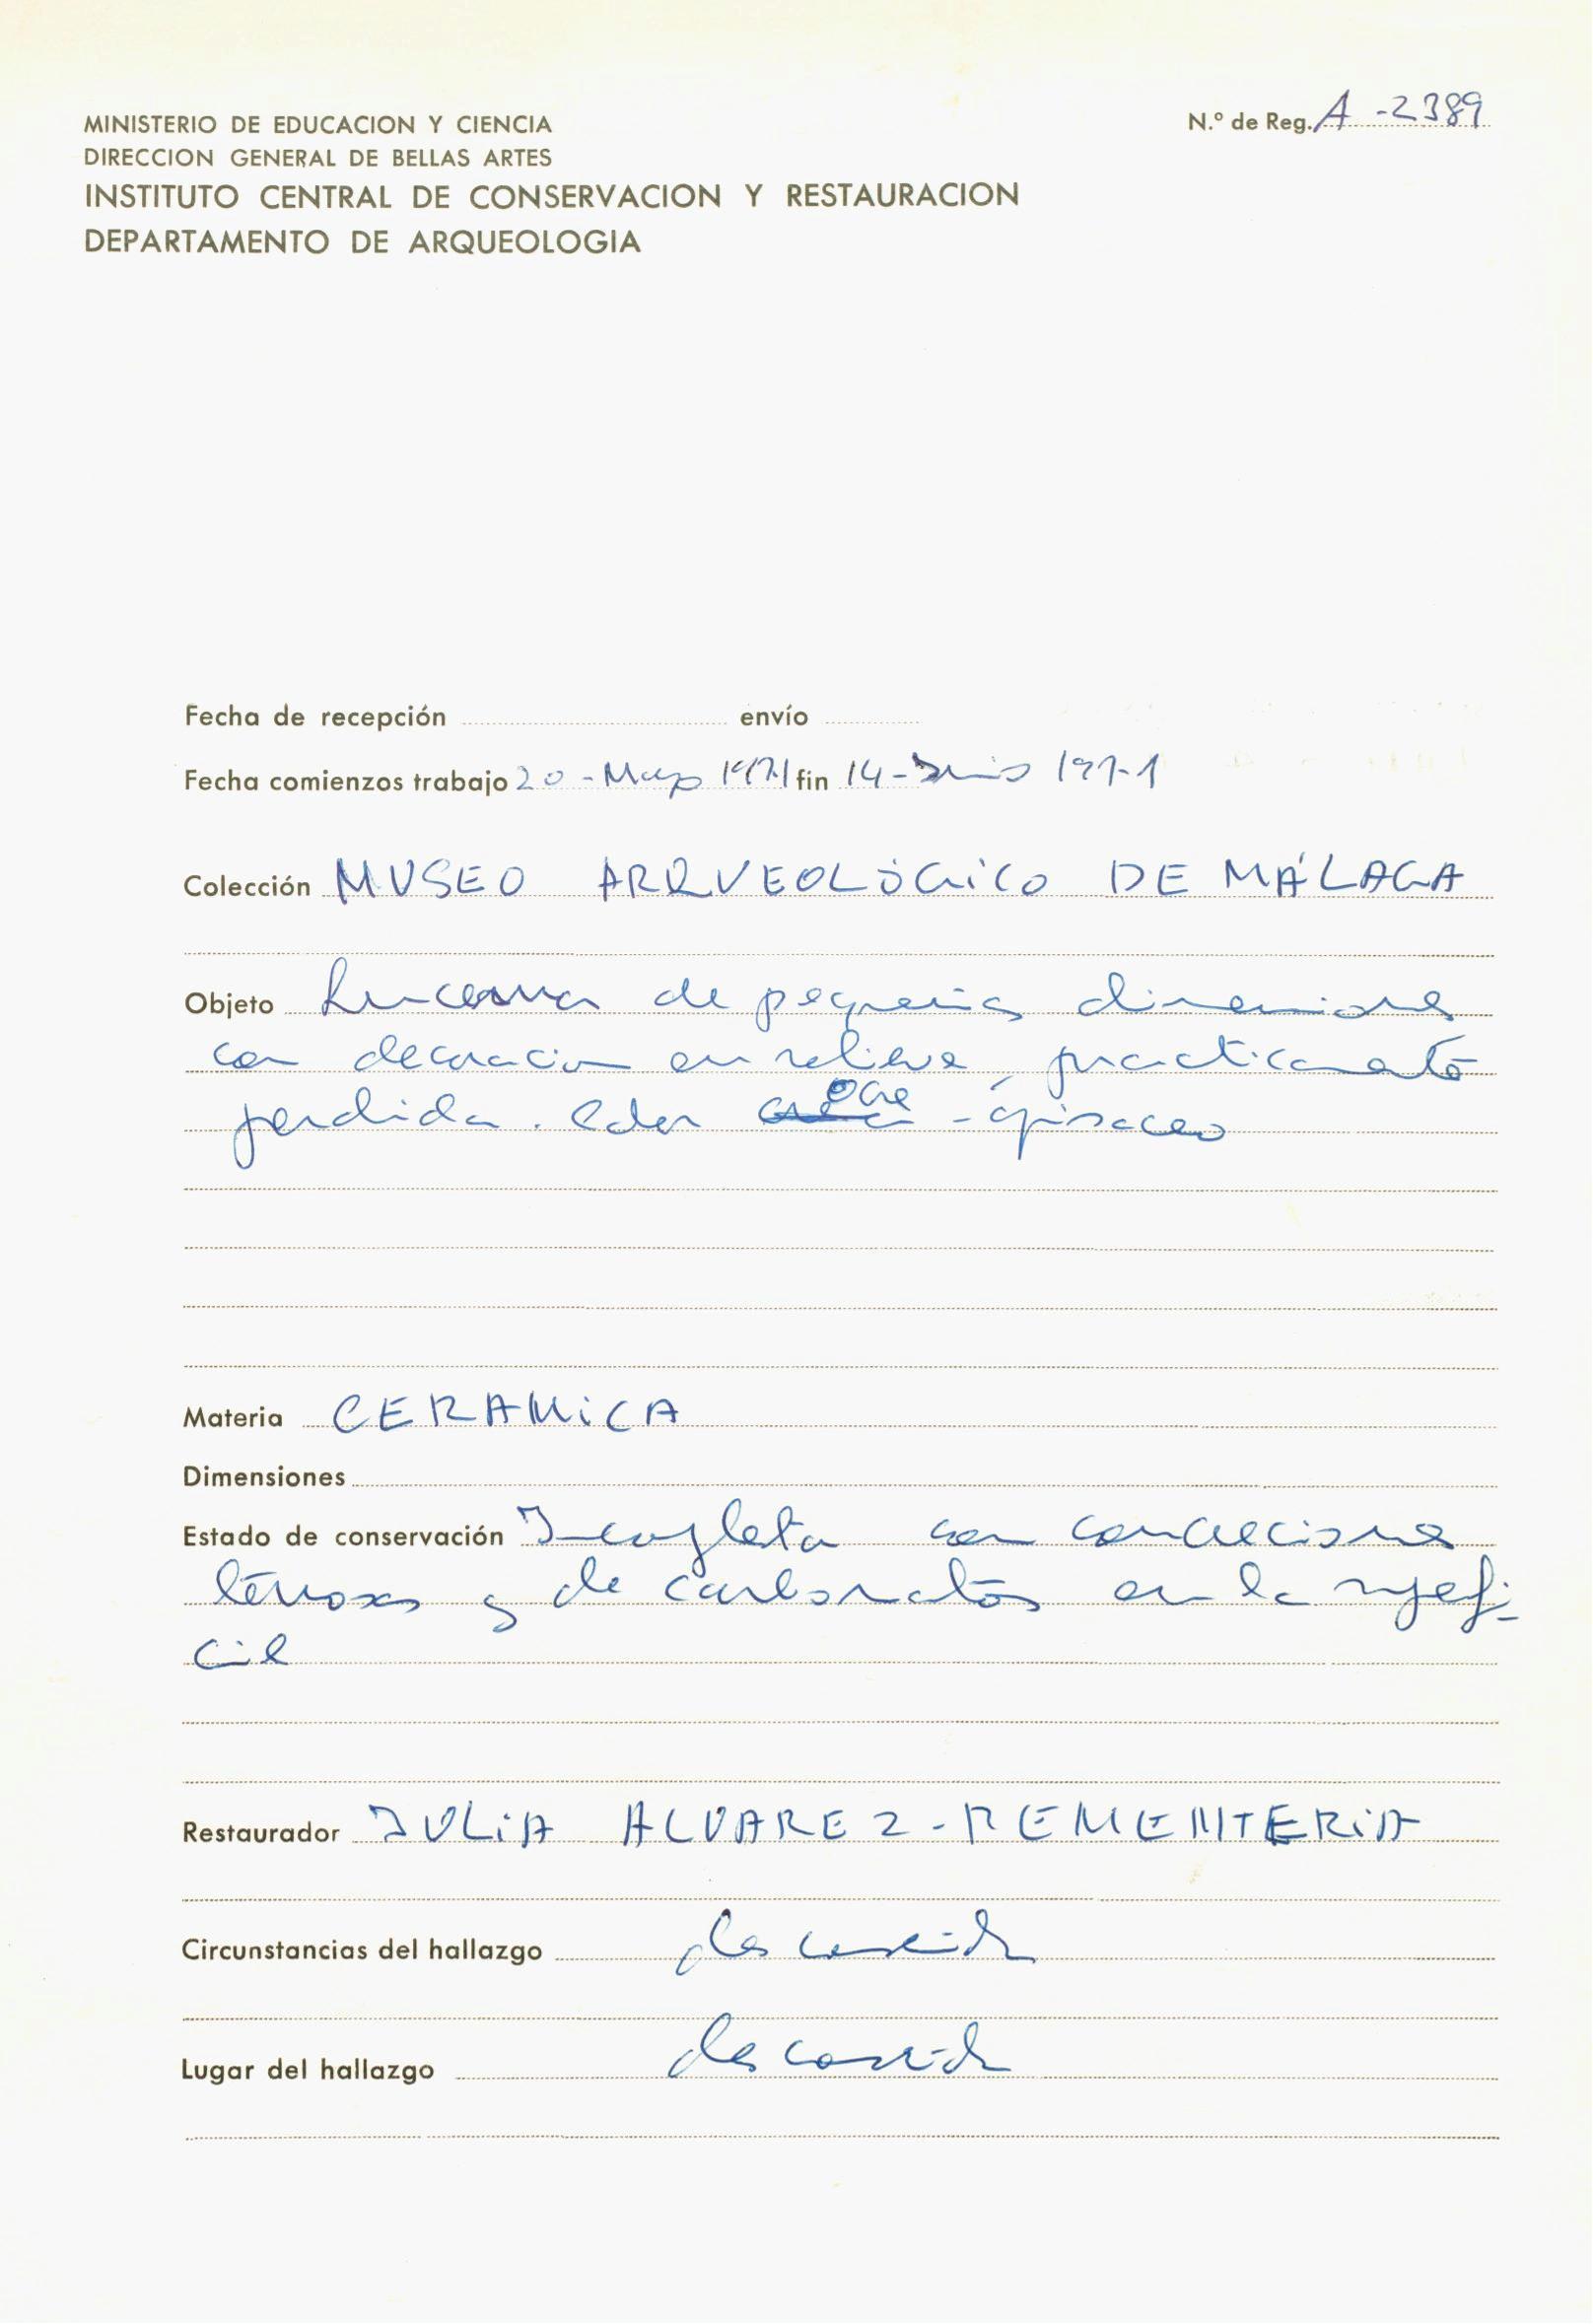 MINISTERIO DE EDUCACION Y CIENCIA
N.º de Reg. A-2389
DIRECCION GENERAL DE BELLAS ARTES
INSTITUTO CENTRAL DE CONSERVACION Y RESTAURACION
DEPARTAMENTO DE ARQUEOLOGIA
Fecha de recepción envío
Fecha comienzos trabajo 20-Mayo 1971 fin 14-Junio 1971
Colección MUSEO ARQUEOLÓGICO DE MÁLAGA
Objeto Lucerna de pequeñas dimensiones
con decoracion en relieve, practicamente
perdida. Color ocre - grisaceo
Materia CERAMICA
Dimensiones
Estado de conservación Incompleta con concreciones
terrosas y de carbonatos en la superfi-
cie
Restaurador JULIA ALVAREZ-REMENTERIA
Circunstancias del hallazgo desconocida
Lugar del hallazgo desconocido